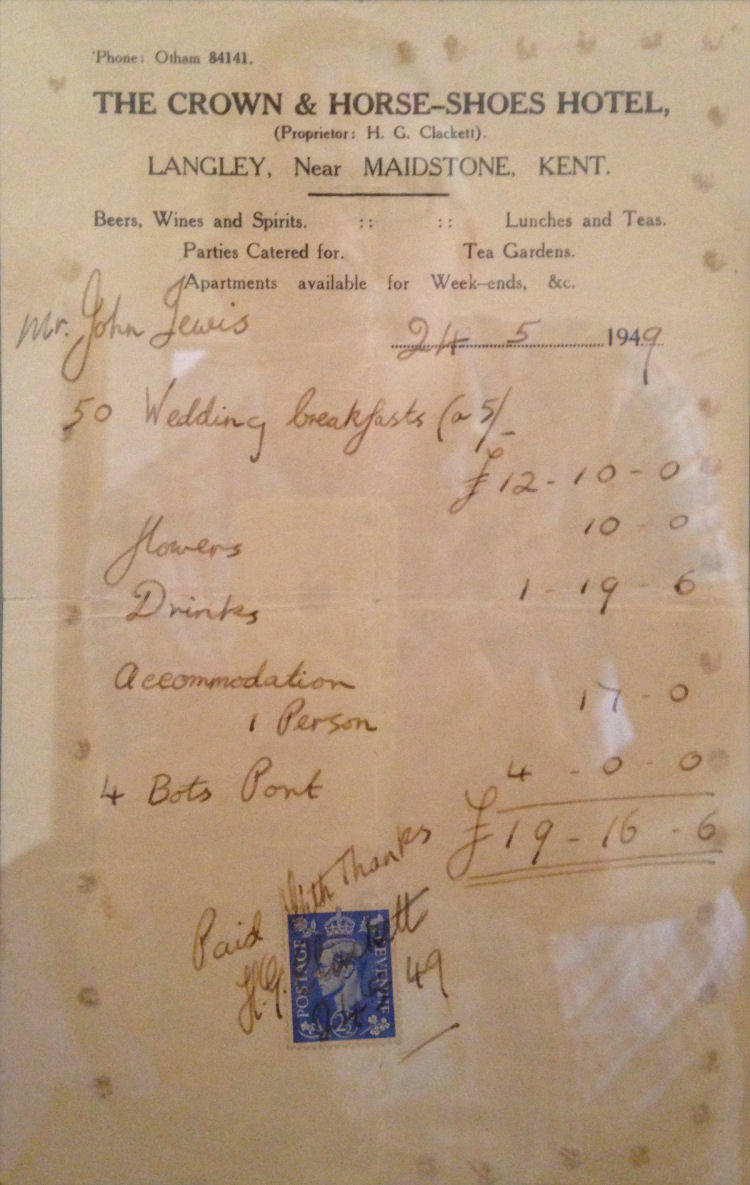 'Phone: Otham 84141.
THE CROWN & HORSE-SHOES HOTEL,
(Proprietor: H. G. Clackett).
LANGLEY, Near MAIDSTONE, KENT.
Beers, Wines and Spirits. :: :: Lunches and Teas.
Parties Catered for. Tea Gardens.
Apartments available for Week-ends, &c.
Mr. John Lewis 24 5 1949
50 Wedding breakfasts (a 5/-
£12-10-0
flowers 10-0
Drinks 1-19-6
Accommodation
1 Person 17-0
4 Bots Port 4-0-0
£19-16-6
Paid With Thanks
H.G. Clackett
49
POSTAGE REVENUE
2½